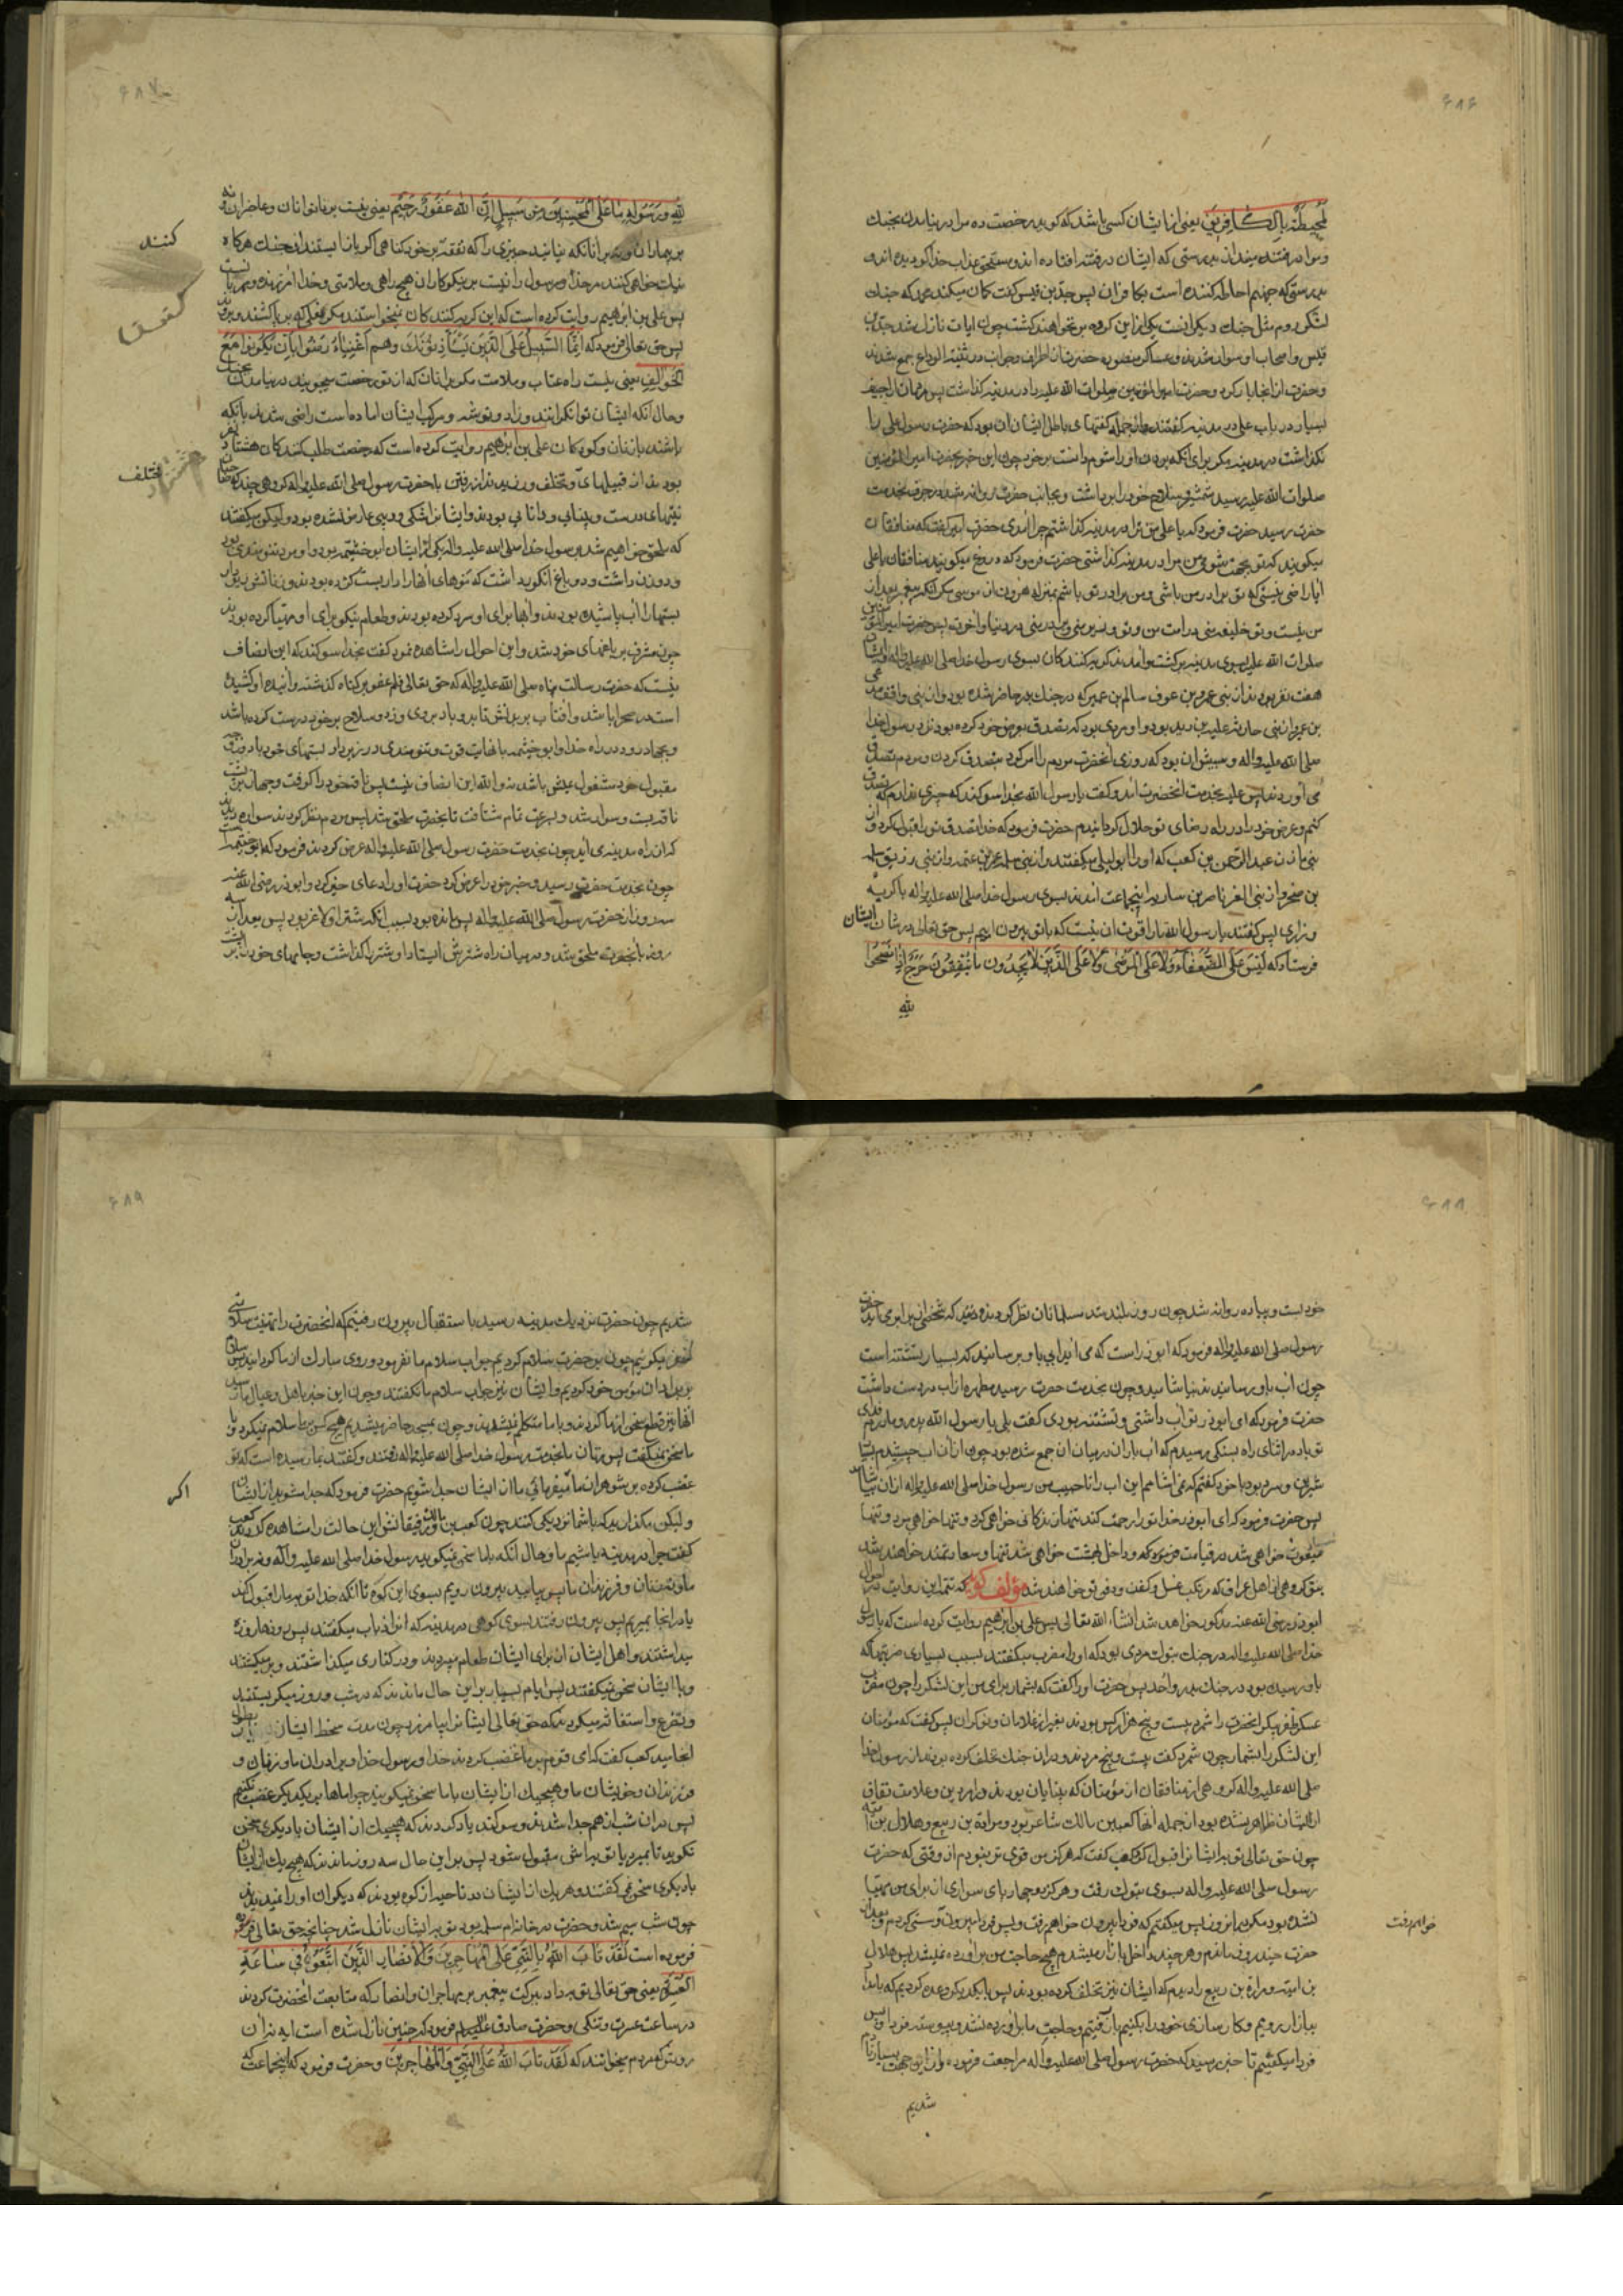 ۶۸۶
لَمُحِيطَةٌ بِالْكَافِرِينَ یعنی از ایشان کسی باشد که گوید رخصت ده مرا در نیامدن بجنك
و مرا در فتنه مینداز بدرستی که ایشان در فتنه افتاده اند و مستحق عذاب خدا گردیده اند و
بدرستی که جهنم احاطه کننده است بکافران پس جدّ بن قیس گفت گمان میکند محمد که جنك
لشکر روم مثل جنك دیگرانست یکی از این گروه بر نخواهند گشت چون ایات نازل شد جدّ بن
قیس و اصحاب او رسوا شدند و عساکر منصوره حضرت از اطراف و جوانب در ثنیة الوداع جمع شدند
و حضرت از انجا بار کرد و حضرت امیر المؤمنین صلوات الله علیه را در مدینه گذاشت پس مردمان اراجیف
بسیار در باب علی در مدینه گفتند و از جمله گفتهای باطل ایشان ان بود که حضرت رسول علی را
نگذاشت در مدینه مگر برای انکه بردن او را شوم دانست بر خود چون این خبر بحضرت امیر المؤمنین
صلوات الله علیه رسید شمشیر و سلاح خود را برداشت و بجانب حضرت روانه شد در جرف بخدمت
حضرت رسید حضرت فرمود که یا علی من ترا در مدینه گذاشتم چرا امدی حضرت امیر گفت که منافقان
میگویند که تو بجهت شومی من مرا در مدینه گذاشتی حضرت فرمود که دروغ میگویند منافقان یا علی
ایا راضی نیستی که تو برادر من باشی و من برادر تو باشم بمنزله هرون از موسی مگر انکه پیغمبر بعد از
من نیست و تو خلیفه منی در امت من و تو وزیر منی و برادر منی در دنیا و اخرت پس حضرت امیر المؤمنین
صلوات الله علیه بسوی مدینه برگشت و امدند گریه کنندگان بسوی رسول خدا صلی الله علیه واله و ایشان
هفت نفر بودند از بنی عمرو بن عوف سالم بن عمیر که در جنك بدر حاضر شده بود و از بنی واقف هرمی
بن عمیر از بنی حارثه علیة بن زید بود و او مردی بود که تصدق بعرض خود کرده بود نزد رسول خدا
صلی الله علیه واله و سببش ان بود که روزی انحضرت مردم را امر کرد بتصدق کردن و مردم تصدق
می اوردند پس علیه بخدمت انحضرت امد و گفت یا رسول الله بخدا سوگند که چیزی ندارم که تصدق
کنم و عرض خود را در راه رضای تو حلال گردانیدم حضرت فرمود که خدا تصدق ترا قبول کرد و از
بنی مازن عبد الرحمن بن کعب که او را ابو لیلی میگفتند و از بنی سلمه عمرو بن عتمه و از بنی زریق سلمه
بن صخر و از بنی العرناصر بن ساریه اینجماعت امدند بسوی رسول خدا صلی الله علیه واله با گریه
و زاری پس گفتند یا رسول الله ما را قوت ان نیست که با تو بیرون اییم پس حق تعالی در شان ایشان
فرستاد که لَيْسَ عَلَى الضُّعَفَاءِ وَلَا عَلَى الْمَرْضَى وَلَا عَلَى الَّذِينَ لَا يَجِدُونَ مَا يُنْفِقُونَ حَرَجٌ إِذَا نَصَحُوا
لِلَّهِ
۶۸۷
لِلَّهِ وَرَسُولِهِ مَا عَلَى الْمُحْسِنِينَ مِنْ سَبِيلٍ إِنَّ اللَّهَ غَفُورٌ رَحِيمٌ یعنی نیست بر ناتوانان و عاجزان و نه
بر بیماران و نه بر انانکه نیابند چیزی را که نفقه بر خود کنند گناهی اگر باز ایستند از جنك هرگاه
کنند
نیك خواهی کنند مر خدا و رسول را نیست بر نیکوکاران هیچ راهی و ملامتی و خدا امرزنده و مهربانست
پس علی بن ابرهیم روایت کرده است که این گریه کنندگان نمیخواستند مگر نعلی که بر پا کشند و بروند
پس حق تعالی فرمود که إِنَّمَا السَّبِيلُ عَلَى الَّذِينَ يَسْتَأْذِنُونَكَ وَهُمْ أَغْنِيَاءُ رَضُوا بِأَنْ يَكُونُوا مَعَ
الْخَوَالِفِ یعنی نیست راه عتاب و ملامت مگر بر انان که از تو رخصت میجویند در نیامدن بجنك
و حال انکه ایشان توانگرانند و زاد و توشه و مرکب ایشان اماده است راضی شدند بانکه
باشند با زنان و کودکان علی بن ابرهیم روایت کرده است که رخصت طلب کنندگان هشتاد نفر
بودند از قبیلهای مختلف و تخلف ورزیدند از رفتن با حضرت رسول صلی الله علیه واله گروهی چند که صاحبان
مختلف
نیتهای درست و بینایی و دانایی بودند و ایشانرا شکی و ریبی عارض نشده بود و لیکن میگفتند
که ملحق خواهیم شد برسول خدا صلی الله علیه واله یکی از ایشان ابو خیثمه بود و او مرد تنومندی بود
و دو زن داشت و دو باغ انگور داشت که تنوهای انها را داربست کرده بودند و زنانش زیر دار
بستها را اب پاشیده بودند و ابها برای او سرد کرده بودند و طعام نیکو برای او مهیا کرده بودند
چون مشرف بر باغهای خود شد و این احوال را مشاهده نمود گفت بخدا سوگند که این انصاف
نیست که حضرت رسالت پناه صلی الله علیه واله که حق تعالی قلم عفو بر گناه گذشته و اینده او کشیده
است در صحرا باشد و افتاب بر بدنش تابد و باد بر وی وزد و سلاح بر خود درست کرده باشد
و بجهاد رود در راه خدا و ابو خیثمه با نهایت قوت و تنومندی در زیر دار بستهای خود با دو زن
مقبول خود مشغول عیش باشد نه والله این انصاف نیست پس ناقه خود را گرفت و جهاز بر پشت
ناقه بست و سوار شد و بسرعت تمام شتافت تا بحضرت ملحق شد پس مردم نظر کردند سواره دیدند
که از راه مدینه می اید چون بخدمت حضرت رسول صلی الله علیه واله عرض کردند فرمود که ابو خیثمه است
چون بخدمت حضرت رسید و خبر خود را عرض کرد حضرت او را دعای خیر کرد و ابوذر رضی الله عنه
سه روز از حضرت رسول صلی الله علیه واله پس مانده بود بسبب انکه شتر او لاغر بود پس بعد از سه
روز بانحضرت ملحق شد و در میان راه شترش ایستاد و شتر را گذاشت و جامهای خود را بر پشت
۶۸۸
خود بست و پیاده روانه شد چون روز بلند شد مسلمانان نظر کردند و دیدند که شخصی از برابر می اید حضرت
رسول صلی الله علیه واله فرمود که ابوذر است که می اید ابی باو برسانید که بسیار تشنه است
چون اب باو رسانیدند بیاشامید و چون بخدمت حضرت رسید مطهره از اب در دست داشت
حضرت فرمود که ای ابوذر تو اب داشتی و تشنه بودی گفت بلی یا رسول الله پدر و مادرم فدای
تو باد در اثنای راه بسنگی رسیدم که اب باران در میان ان جمع شده بود چون از ان اب چشیدم بسیار
شیرین و سرد بود با خود گفتم که نمی اشامم این اب را تا حبیب من رسول خدا صلی الله علیه واله از ان بیاشامد
پس حضرت فرمود که ای ابوذر خدا تو را رحمت کند تنها زندگانی خواهی کرد و تنها خواهی مرد و تنها
مبعوث خواهی شد در قیامت و داخل بهشت خواهی شد تنها و سعادتمند خواهند شد
بتو گروهی از اهل عراق که مرتکب غسل و کفن و دفن تو خواهند شد مؤلف گوید که تتمه این روایت در احوال
ابوذر رضی الله عنه مذکور خواهد شد انشاء الله تعالی پس علی بن ابرهیم روایت کرده است که با رسول
خدا صلی الله علیه واله در جنك تبوك مردی بود که او را مضرب میگفتند بسبب بسیاری ضربتها که
باو رسیده بود در جنك بدر و احد پس حضرت او را گفت که بشمار برای من این لشکر را چون مضرب
عسکر ظفر پیکر انحضرت را شمرد بیست و پنج هزار کس بودند بغیر از غلامان و نوکران پس گفت که مؤمنان
این لشکر را بشمار چون شمرد گفت بیست و پنج مردند و در ان جنك تخلف کرده بودند از رسول خدا
صلی الله علیه واله گروهی از منافقان و از مؤمنان که بینایان بودند در امر دین و علامت نفاق
از ایشان ظاهر نشده بود از جمله انها کعب بن مالك شاعر بود و مرارة بن ربیع و هلال بن امیه
چون حق تعالی توبه ایشانرا قبول کرد کعب گفت که هرگز من قوی تر نبودم از وقتی که حضرت
رسول صلی الله علیه واله بسوی تبوك رفت و هرگز دو چهار پای سواری از برای من مهیا
نشده بود مگر در انروز پس میگفتم که فردا بیرون خواهم رفت و پس فردا بیرون و سستی کردم و بعد از
خواهم رفت
حضرت چند روز ماندم و هر چند داخل بازار میشدم هیچ حاجت من براورده نمیشد پس هلال
بن امیه و مرارة بن ربیع را دیدم که ایشان نیز تخلف کرده بودند پس با یکدیگر وعده کردیم که بامداد
ببازار رویم و کارسازی خود را بکنیم بازار رفتیم و حاجت ما براورده نشد و پیوسته فردا و پس
فردا میگفتیم تا خبر رسید که حضرت رسول صلی الله علیه واله مراجعت فرموده و از این جهت بسیار نادم
شدیم
۶۸۹
شدیم چون حضرت نزدیك مدینه رسید باستقبال بیرون رفتیم که انحضرت را تهنیت سلامتی
میگوئیم چون بر حضرت سلام کردیم جواب سلام ما نفرمود و روی مبارك از ما گردانید پس سلام
بر برادران مؤمن خود کردیم و ایشان نیز جواب سلام ما نگفتند و چون این خبر باهل و عیال ما رسید
انها نیز قطع سخن از ما کردند و با ما متکلم نمیشدند و چون بمسجد حاضر میشدیم هیچ کس بر ما سلام نمیکرد و با
ما سخن نمیگفت پس زنان ما بخدمت رسول خدا صلی الله علیه واله رفتند و گفتند بما رسیده است که تو
غضب کرده بر شوهران ما اگر میفرمائی ما از ایشان جدا شویم حضرت فرمود که جدا مشوید از ایشان
اگر
و لیکن مگذارید که با شما نزدیکی کنند چون کعب بن مالك و رفیقانش این حالت را مشاهده کردند کعب
گفت چرا در مدینه باشیم ما و حال انکه با ما سخن نمیگوید رسول خدا صلی الله علیه واله و نه برادران
ما و نه زنان و فرزندان ما پس بیائید بیرون رویم بسوی این کوه تا انکه خدا توبه ما را قبول کند
یا در انجا بمیریم پس بیرون رفتند بسوی کوهی در مدینه که انرا ذباب میگفتند پس روزها روزه
میداشتند و اهل ایشان از برای ایشان طعام میبردند و در کناری میگذاشتند و بر میگشتند
و با ایشان سخن نمیگفتند پس ایام بسیار بر این حال ماندند که در شب و روز میگریستند
و تضرع و استغاثه میکردند که حق تعالی ایشانرا بیامرزد چون مدت سخط ایشان بطول
انجامید کعب گفت که ای قوم بر ما غضب کردند خدا و رسول خدا و برادران ما و زنان و
فرزندان و خویشان ما و هیچیك از ایشان با ما سخن نمیگویند چرا ما ها بر یکدیگر غضب نکنیم
پس در ان شب از هم جدا شدند و سوگند یاد کردند که هیچیك از ایشان با دیگری سخن
نگوید تا بمیرد یا توبه اش مقبول شود پس بر این حال سه روز ماندند که هیچ یك از ایشان
با دیگری سخن نمی گفتند و هر یك از ایشان در ناحیه از کوه بودند که دیگران او را نمیدیدند
چون شب سیم شد و حضرت در خانه ام سلمه بود توبه ایشان نازل شد چنانچه حق تعالی
فرموده است لَقَدْ تَابَ اللَّهُ بِالنَّبِيِّ عَلَى الْمُهَاجِرِينَ وَالْأَنْصَارِ الَّذِينَ اتَّبَعُوهُ فِي سَاعَةِ
الْعُسْرَةِ یعنی حق تعالی توبه داد ببرکت پیغمبر بر مهاجران و انصار که متابعت انحضرت کردند
در ساعت عسرت و تنگی و حضرت صادق علیه السلام فرمود که چنین نازل شده است ایه نه ان
روش که مردم میخوانند که لَقَدْ تَابَ اللَّهُ عَلَى النَّبِيِّ وَالْمُهَاجِرِينَ و حضرت فرمود که اینجماعت که